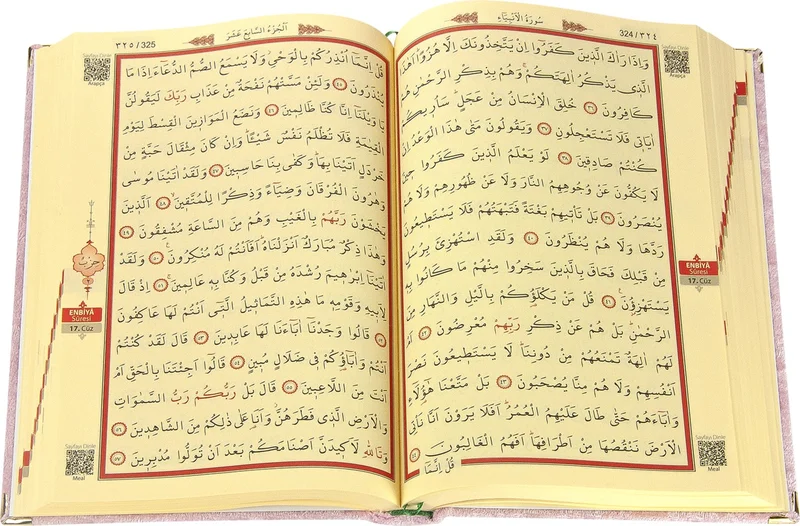 سُورَةُ الْاَنْبِيَاءِ
324 / ٣٢٤
وَاِذَا رَاٰكَ الَّذِينَ كَفَرُوا اِنْ يَتَّخِذُونَكَ اِلَّا هُزُوًا اَهٰذَا
الَّذِي يَذْكُرُ اٰلِهَتَكُمْ وَهُمْ بِذِكْرِ الرَّحْمٰنِ هُمْ
كَافِرُونَ ٣٦ خُلِقَ الْاِنْسَانُ مِنْ عَجَلٍ سَاُرِيكُمْ
اٰيَاتِي فَلَا تَسْتَعْجِلُونِ ٣٧ وَيَقُولُونَ مَتٰى هٰذَا الْوَعْدُ اِنْ
كُنْتُمْ صَادِقِينَ ٣٨ لَوْ يَعْلَمُ الَّذِينَ كَفَرُوا حِينَ
لَا يَكُفُّونَ عَنْ وُجُوهِهِمُ النَّارَ وَلَا عَنْ ظُهُورِهِمْ وَلَا هُمْ
يُنْصَرُونَ ٣٩ بَلْ تَأْتِيهِمْ بَغْتَةً فَتَبْهَتُهُمْ فَلَا يَسْتَطِيعُونَ
رَدَّهَا وَلَا هُمْ يُنْظَرُونَ ٤٠ وَلَقَدِ اسْتُهْزِئَ بِرُسُلٍ
مِنْ قَبْلِكَ فَحَاقَ بِالَّذِينَ سَخِرُوا مِنْهُمْ مَا كَانُوا بِهِ
يَسْتَهْزِؤُنَ ٤١ قُلْ مَنْ يَكْلَؤُكُمْ بِالَّيْلِ وَالنَّهَارِ مِنَ
الرَّحْمٰنِ بَلْ هُمْ عَنْ ذِكْرِ رَبِّهِمْ مُعْرِضُونَ ٤٢ اَمْ
لَهُمْ اٰلِهَةٌ تَمْنَعُهُمْ مِنْ دُونِنَا لَا يَسْتَطِيعُونَ نَصْرَ
اَنْفُسِهِمْ وَلَا هُمْ مِنَّا يُصْحَبُونَ ٤٣ بَلْ مَتَّعْنَا هٰٓؤُلَاءِ
وَاٰبَاءَهُمْ حَتّٰى طَالَ عَلَيْهِمُ الْعُمُرُ اَفَلَا يَرَوْنَ اَنَّا نَأْتِي
الْاَرْضَ نَنْقُصُهَا مِنْ اَطْرَافِهَا اَفَهُمُ الْغَالِبُونَ ٤٤
قُلْ اِنَّمَا
Sayfayı Dinle
Arapça
ENBİYÂ
Sûresi
17. Cüz
Sayfayı Dinle
Meal
اَلْجُزْءُ السَّابِعَ عَشَرَ
325 / ٣٢٥
قُلْ اِنَّمَا اُنْذِرُكُمْ بِالْوَحْيِ وَلَا يَسْمَعُ الصُّمُّ الدُّعَاءَ اِذَا مَا
يُنْذَرُونَ ٤٥ وَلَئِنْ مَسَّتْهُمْ نَفْحَةٌ مِنْ عَذَابِ رَبِّكَ لَيَقُولُنَّ
يَا وَيْلَنَا اِنَّا كُنَّا ظَالِمِينَ ٤٦ وَنَضَعُ الْمَوَازِينَ الْقِسْطَ لِيَوْمِ
الْقِيٰمَةِ فَلَا تُظْلَمُ نَفْسٌ شَيْئًا وَاِنْ كَانَ مِثْقَالَ حَبَّةٍ مِنْ
خَرْدَلٍ اَتَيْنَا بِهَا وَكَفٰى بِنَا حَاسِبِينَ ٤٧ وَلَقَدْ اٰتَيْنَا مُوسٰى
وَهٰرُونَ الْفُرْقَانَ وَضِيَاءً وَذِكْرًا لِلْمُتَّقِينَ ٤٨ اَلَّذِينَ
يَخْشَوْنَ رَبَّهُمْ بِالْغَيْبِ وَهُمْ مِنَ السَّاعَةِ مُشْفِقُونَ ٤٩
وَهٰذَا ذِكْرٌ مُبَارَكٌ اَنْزَلْنَاهُ اَفَاَنْتُمْ لَهُ مُنْكِرُونَ ٥٠ وَلَقَدْ
اٰتَيْنَا اِبْرٰهِيمَ رُشْدَهُ مِنْ قَبْلُ وَكُنَّا بِهِ عَالِمِينَ ٥١ اِذْ قَالَ
لِاَبِيهِ وَقَوْمِهِ مَا هٰذِهِ التَّمَاثِيلُ الَّتِي اَنْتُمْ لَهَا عَاكِفُونَ
٥٢ قَالُوا وَجَدْنَا اٰبَاءَنَا لَهَا عَابِدِينَ ٥٣ قَالَ لَقَدْ كُنْتُمْ
اَنْتُمْ وَاٰبَاؤُكُمْ فِي ضَلَالٍ مُبِينٍ ٥٤ قَالُوا اَجِئْتَنَا بِالْحَقِّ اَمْ
اَنْتَ مِنَ اللَّاعِبِينَ ٥٥ قَالَ بَلْ رَبُّكُمْ رَبُّ السَّمٰوَاتِ
وَالْاَرْضِ الَّذِي فَطَرَهُنَّ وَاَنَا عَلٰى ذٰلِكُمْ مِنَ الشَّاهِدِينَ ٥٦
وَتَاللّٰهِ لَاَكِيدَنَّ اَصْنَامَكُمْ بَعْدَ اَنْ تُوَلُّوا مُدْبِرِينَ ٥٧
Sayfayı Dinle
Arapça
حزب
٢
ENBİYÂ
Sûresi
17. Cüz
Sayfayı Dinle
Meal